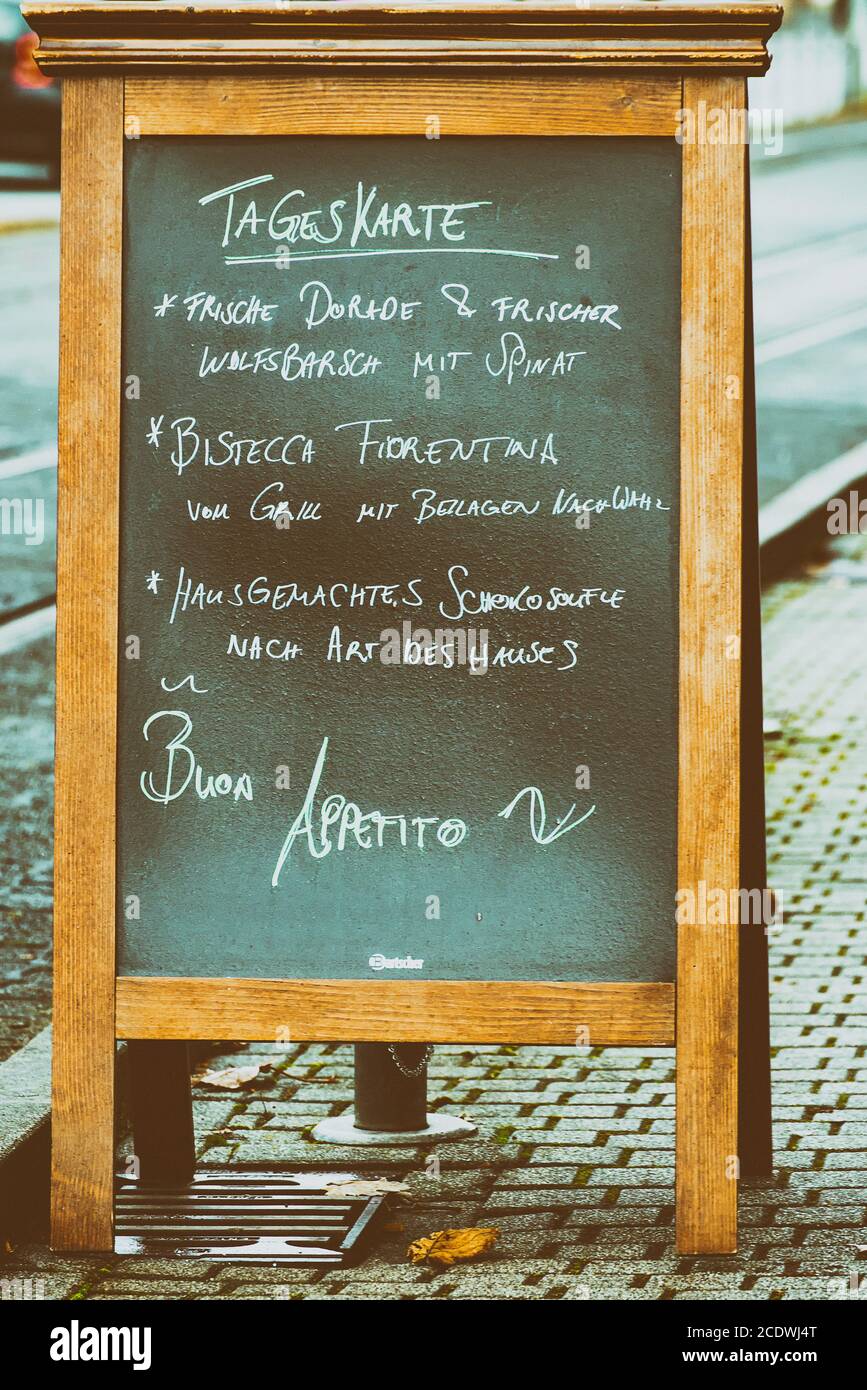 TAGESKARTE
* FRISCHE DORADE & FRISCHER
WOLFSBARSCH MIT SPINAT
* BISTECCA FIORENTINA
VOM GRILL MIT BEILAGEN NACH WAHL
* HAUSGEMACHTES SCHOKOSOUFLE
NACH ART DES HAUSES
BUON
APPETITO
Bartscher
alamy
Image ID: 2CDWJ4T
www.alamy.com